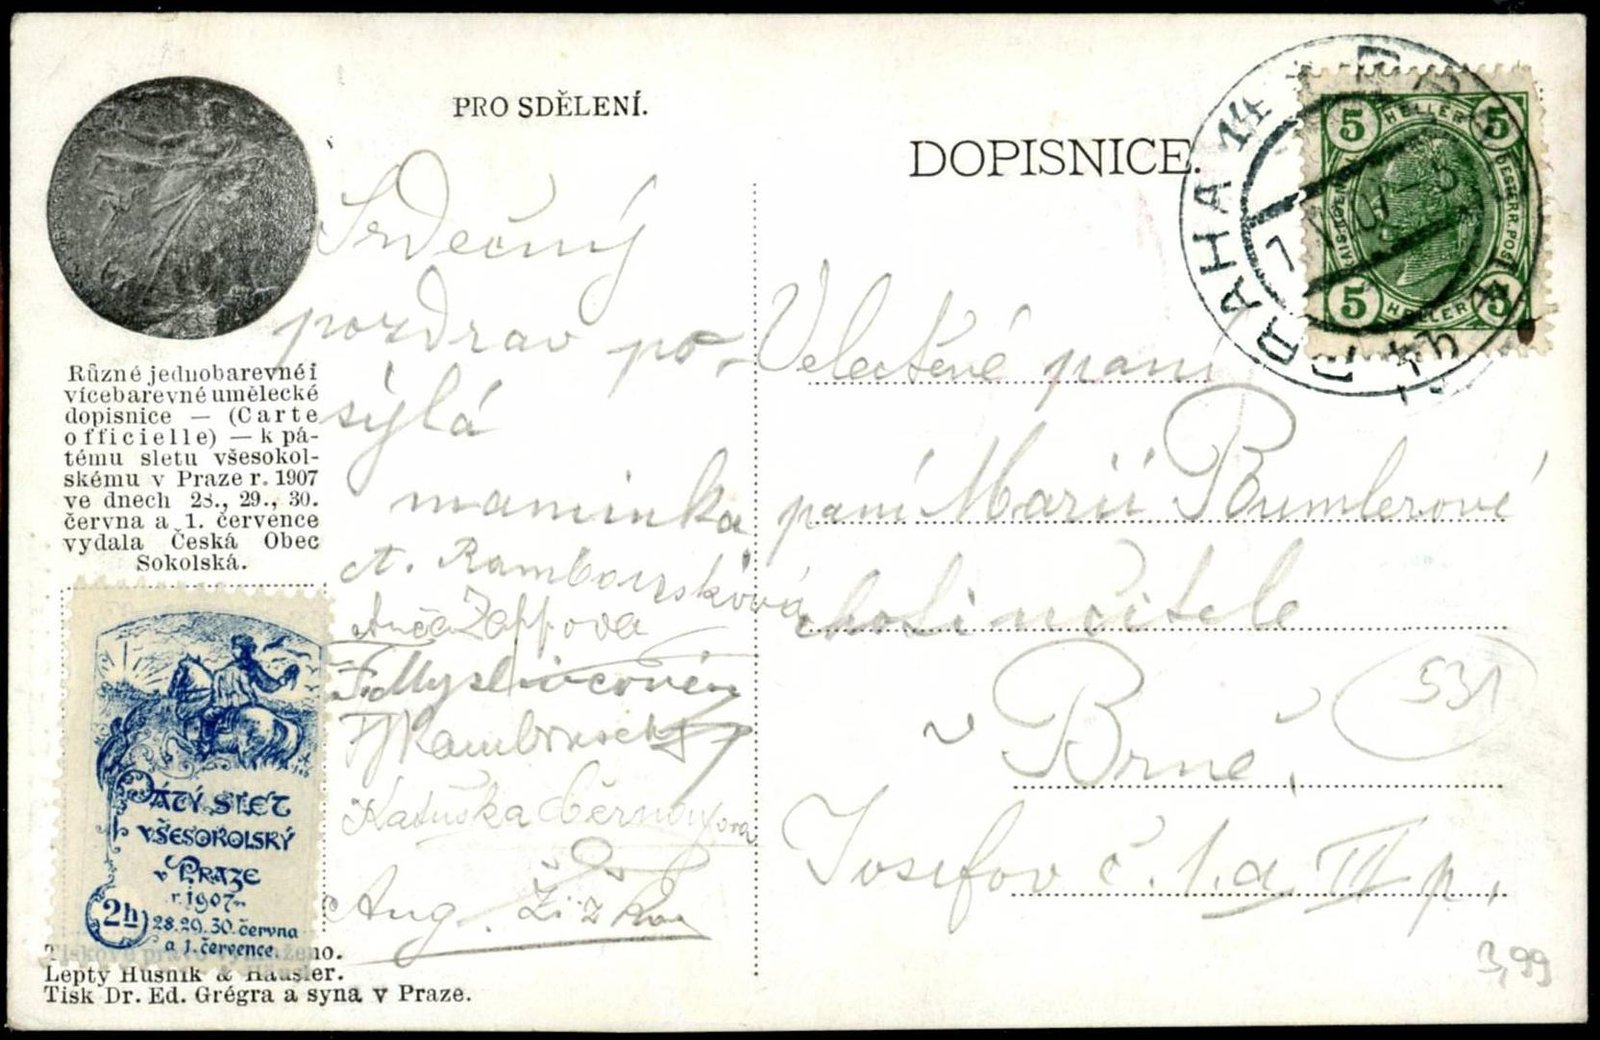 PRO SDĚLENÍ.
DOPISNICE.
Různé jednobarevné i
vícebarevné umělecké
dopisnice — (Carte
officielle) — k pá-
tému sletu všesokol-
skému v Praze r. 1907
ve dnech 28., 29., 30.
června a 1. července
vydala Česká Obec
Sokolská.
PÁTÝ SLET
VŠESOKOLSKÝ
v PRAZE
r. 1907
2h
28.29.30. června
a 1. července.
Tiskové právo vyhraženo.
Lepty Husník & Häusler.
Tisk Dr. Ed. Grégra a syna v Praze.
Srdečný
pozdrav po-
sýlá
maminka
A. Rambousková
Anča Zappova
Katuška
Aug. Žižka
Velectěné paní
paní Marii Rumlerové
choti učitele
v
Brně.
Josefov č. 1.a III p.
531
3,99
PRAHA 14
07
5 HELLER 5
5 HELLER 5